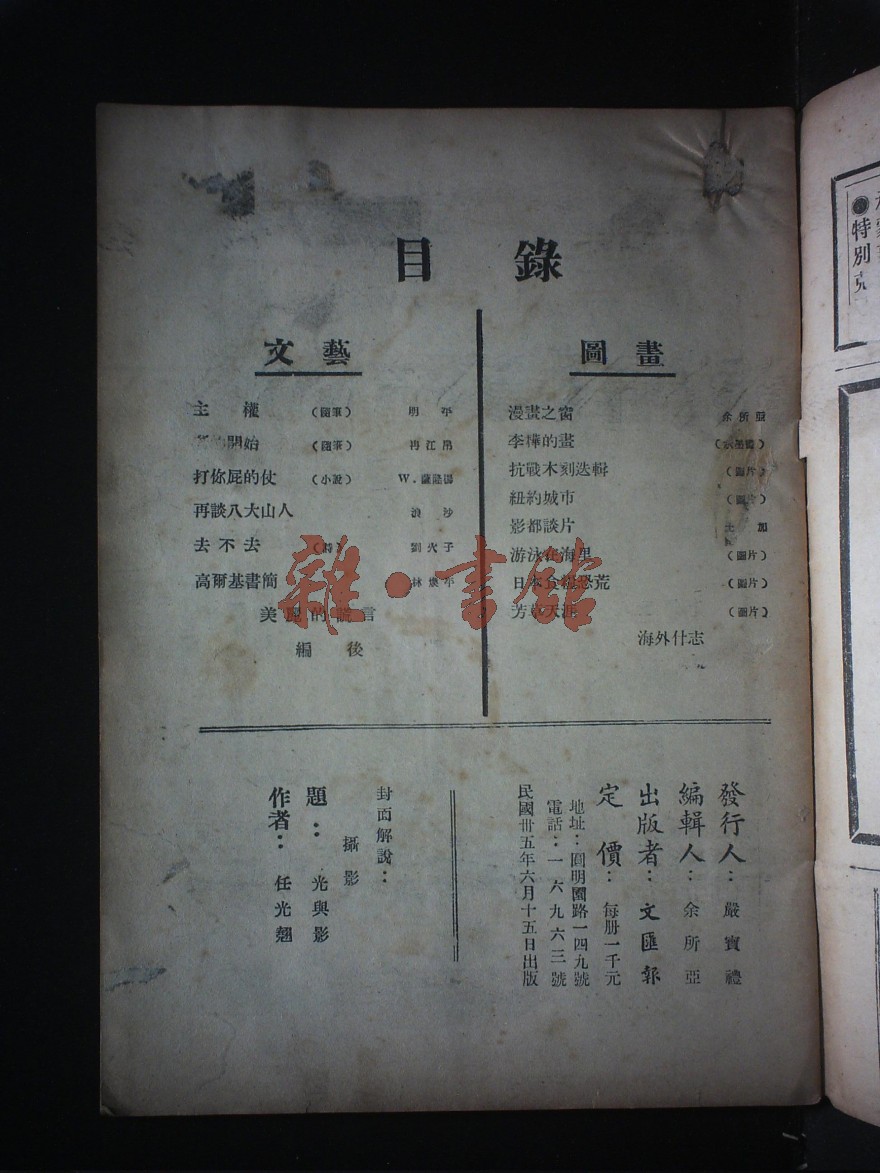 目錄
文藝
主權 （隨筆） 明平
開始 （隨筆） 冉江帛
打你屁的仗 （小說） W．薩隆
再談八大山人 浪沙
去不去 （詩） 劉火子
高爾基書簡 林煥平
美麗的謊言
編後
圖畫
漫畫之窗 余所亞
李樺的畫
抗戰木刻迭輯 （圖片）
紐約城市 （圖片）
影都談片
游泳在海里 （圖片）
日本食糧恐荒 （圖片）
芳草天涯 （圖片）
海外什志
發行人：嚴寶禮
編輯人：余所亞
出版者：文匯報
定價：每册一千元
地址：圓明園路一四九號
電話：一六九六三號
民國卅五年六月十五日出版
封面解說：
攝影
題：光與影
作者：任光翹
雜·書館
●特別